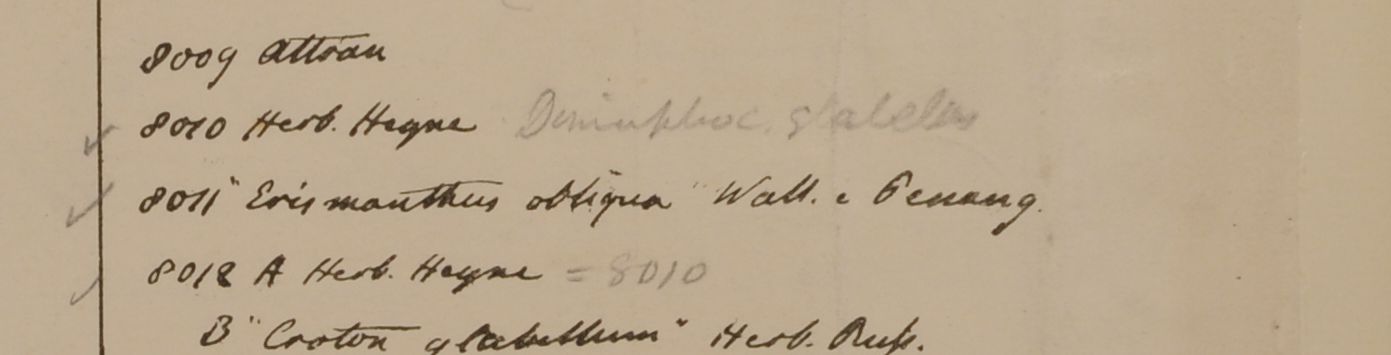 8009 Attran
8010 Herb. Heyne
8011 "Erismanthus obliqua" Wall. e Penang.
8012 A Herb. Heyne = 8010
B "Croton glabellum" Herb. Russ.